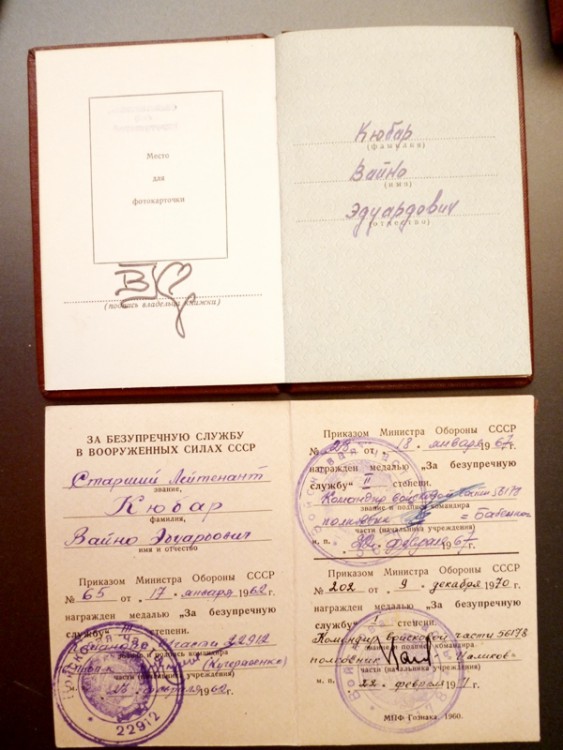 Место
для
фотокарточки
(подпись владельца книжки)
Кюбар
(фамилия)
Вайно
(имя)
Эдуардович
(отчество)
ЗА БЕЗУПРЕЧНУЮ СЛУЖБУ
В ВООРУЖЕННЫХ СИЛАХ СССР
Старший Лейтенант
звание,
Кюбар
фамилия,
Вайно Эдуардович
имя и отчество
Приказом Министра Обороны СССР
№ 65 от „17" января 1962 г.
награжден медалью „За безупречную
службу" степени.
части 22912
звание и подпись командира
части (начальника учреждения)
1962
22912
Приказом Министра Обороны СССР
от „18" января 1967 г.
награжден медалью „За безупречную
службу" II степени.
Командир войсковой части
звание и подпись командира
полковник
части (начальника учреждения)
м. п. февраля 1967 г.
Приказом Министра Обороны СССР
№ 202 от „9" декабря 1970 г.
награжден медалью „За безупречную
службу" I степени.
Командир войсковой части 56178
звание и подпись командира
полковник
части (начальника учреждения)
м. п. „22" февраля 1971 г.
МПФ Гознака. 1960.